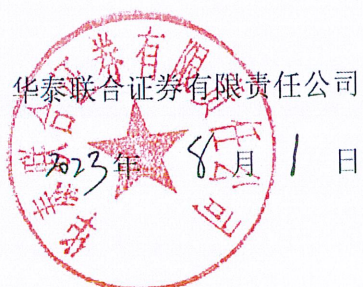 华泰联合证券有限责任公司
2023年 8月 1 日
华泰联合证券有限责任公司